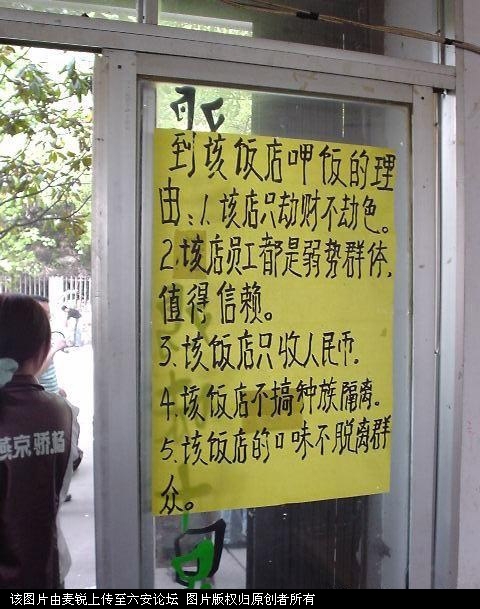 到该饭店呷饭的理
由:1.该店只劫财不劫色。
2.该店员工都是弱势群体,
值得信赖。
3.该饭店只收人民币.
4.该饭店不搞种族隔离。
5.该饭店的口味不脱离群
众。
燕京骄杨
该图片由麦锐上传至六安论坛 图片版权归原创者所有